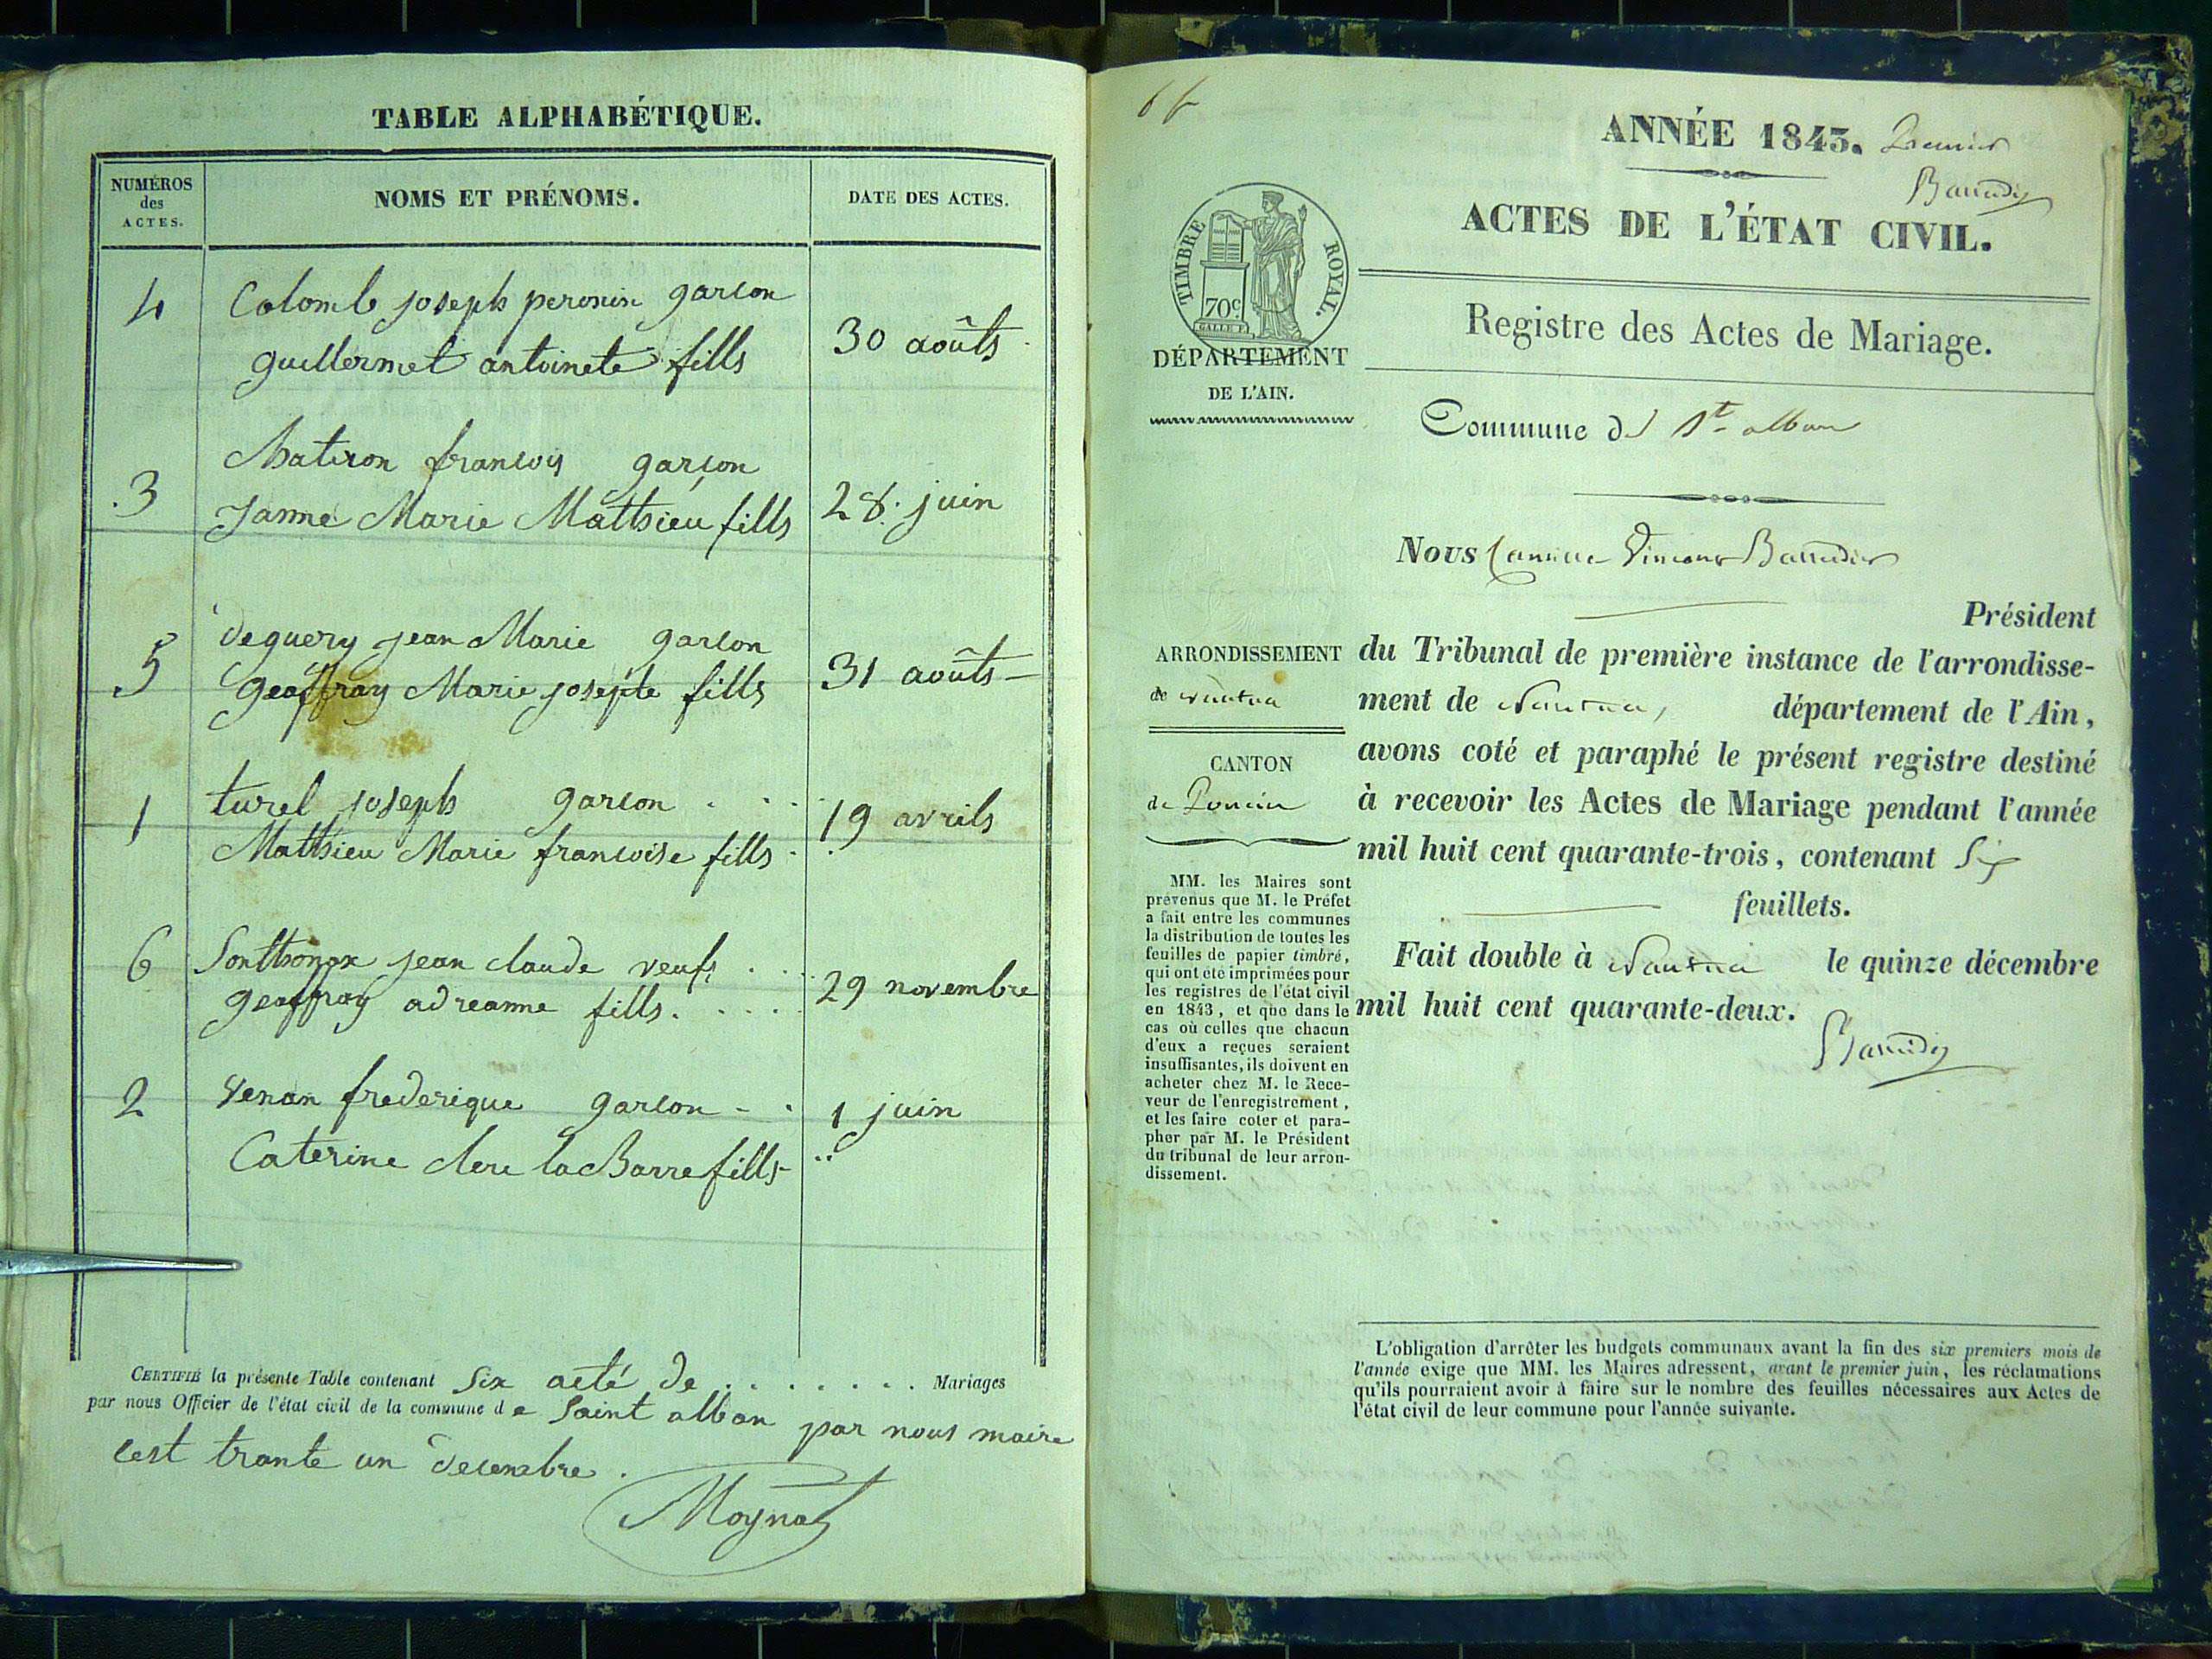 TABLE ALPHABÉTIQUE.
NUMÉROS
des
ACTES.
NOMS ET PRÉNOMS.
DATE DES ACTES.
4
Colomb joseph peronin garcon
guillermet antoinete fills
30 aoûts
3
Chatiron francois garçon
Janne Marie Matthieu fills
28. juin
5
deguery jean Marie garcon
geoffray Marie josepte fills
31 aoûts
1
turel joseph garcon
Matthieu Marie francoise fills
19 avrils
6
Sonthonax jean claude veufs
geoffray adreanne fills
29 novembre
2
venan frederique garcon
Caterine clere la Barre fills
1 juin
CERTIFIÉ la présente Table contenant Six acté de Mariages
par nous Officier de l'état civil de la commune de Saint alban par nous maire
cest trante un decembre.
Moynat
ANNÉE 1843. Premier
ACTES DE L'ÉTAT CIVIL.
Registre des Actes de Mariage.
TIMBRE ROYAL.
70c
DÉPARTEMENT
DE L'AIN.
Commune de St alban
Nous Camille Vincent
Président
du Tribunal de première instance de l'arrondisse-
ment de Nantua, département de l'Ain,
avons coté et paraphé le présent registre destiné
à recevoir les Actes de Mariage pendant l'année
mil huit cent quarante-trois, contenant Six
feuillets.
Fait double à Nantua le quinze décembre
mil huit cent quarante-deux.
ARRONDISSEMENT
de Nantua
CANTON
de Poncin
MM. les Maires sont
prévenus que M. le Préfet
a fait entre les communes
la distribution de toutes les
feuilles de papier timbré,
qui ont été imprimées pour
les registres de l'état civil
en 1843, et que dans le
cas où celles que chacun
d'eux a reçues seraient
insuffisantes, ils doivent en
acheter chez M. le Rece-
veur de l'enregistrement,
et les faire coter et para-
pher par M. le Président
du tribunal de leur arron-
dissement.
L'obligation d'arrêter les budgets communaux avant la fin des six premiers mois de
l'année exige que MM. les Maires adressent, avant le premier juin, les réclamations
qu'ils pourraient avoir à faire sur le nombre des feuilles nécessaires aux Actes de
l'état civil de leur commune pour l'année suivante.